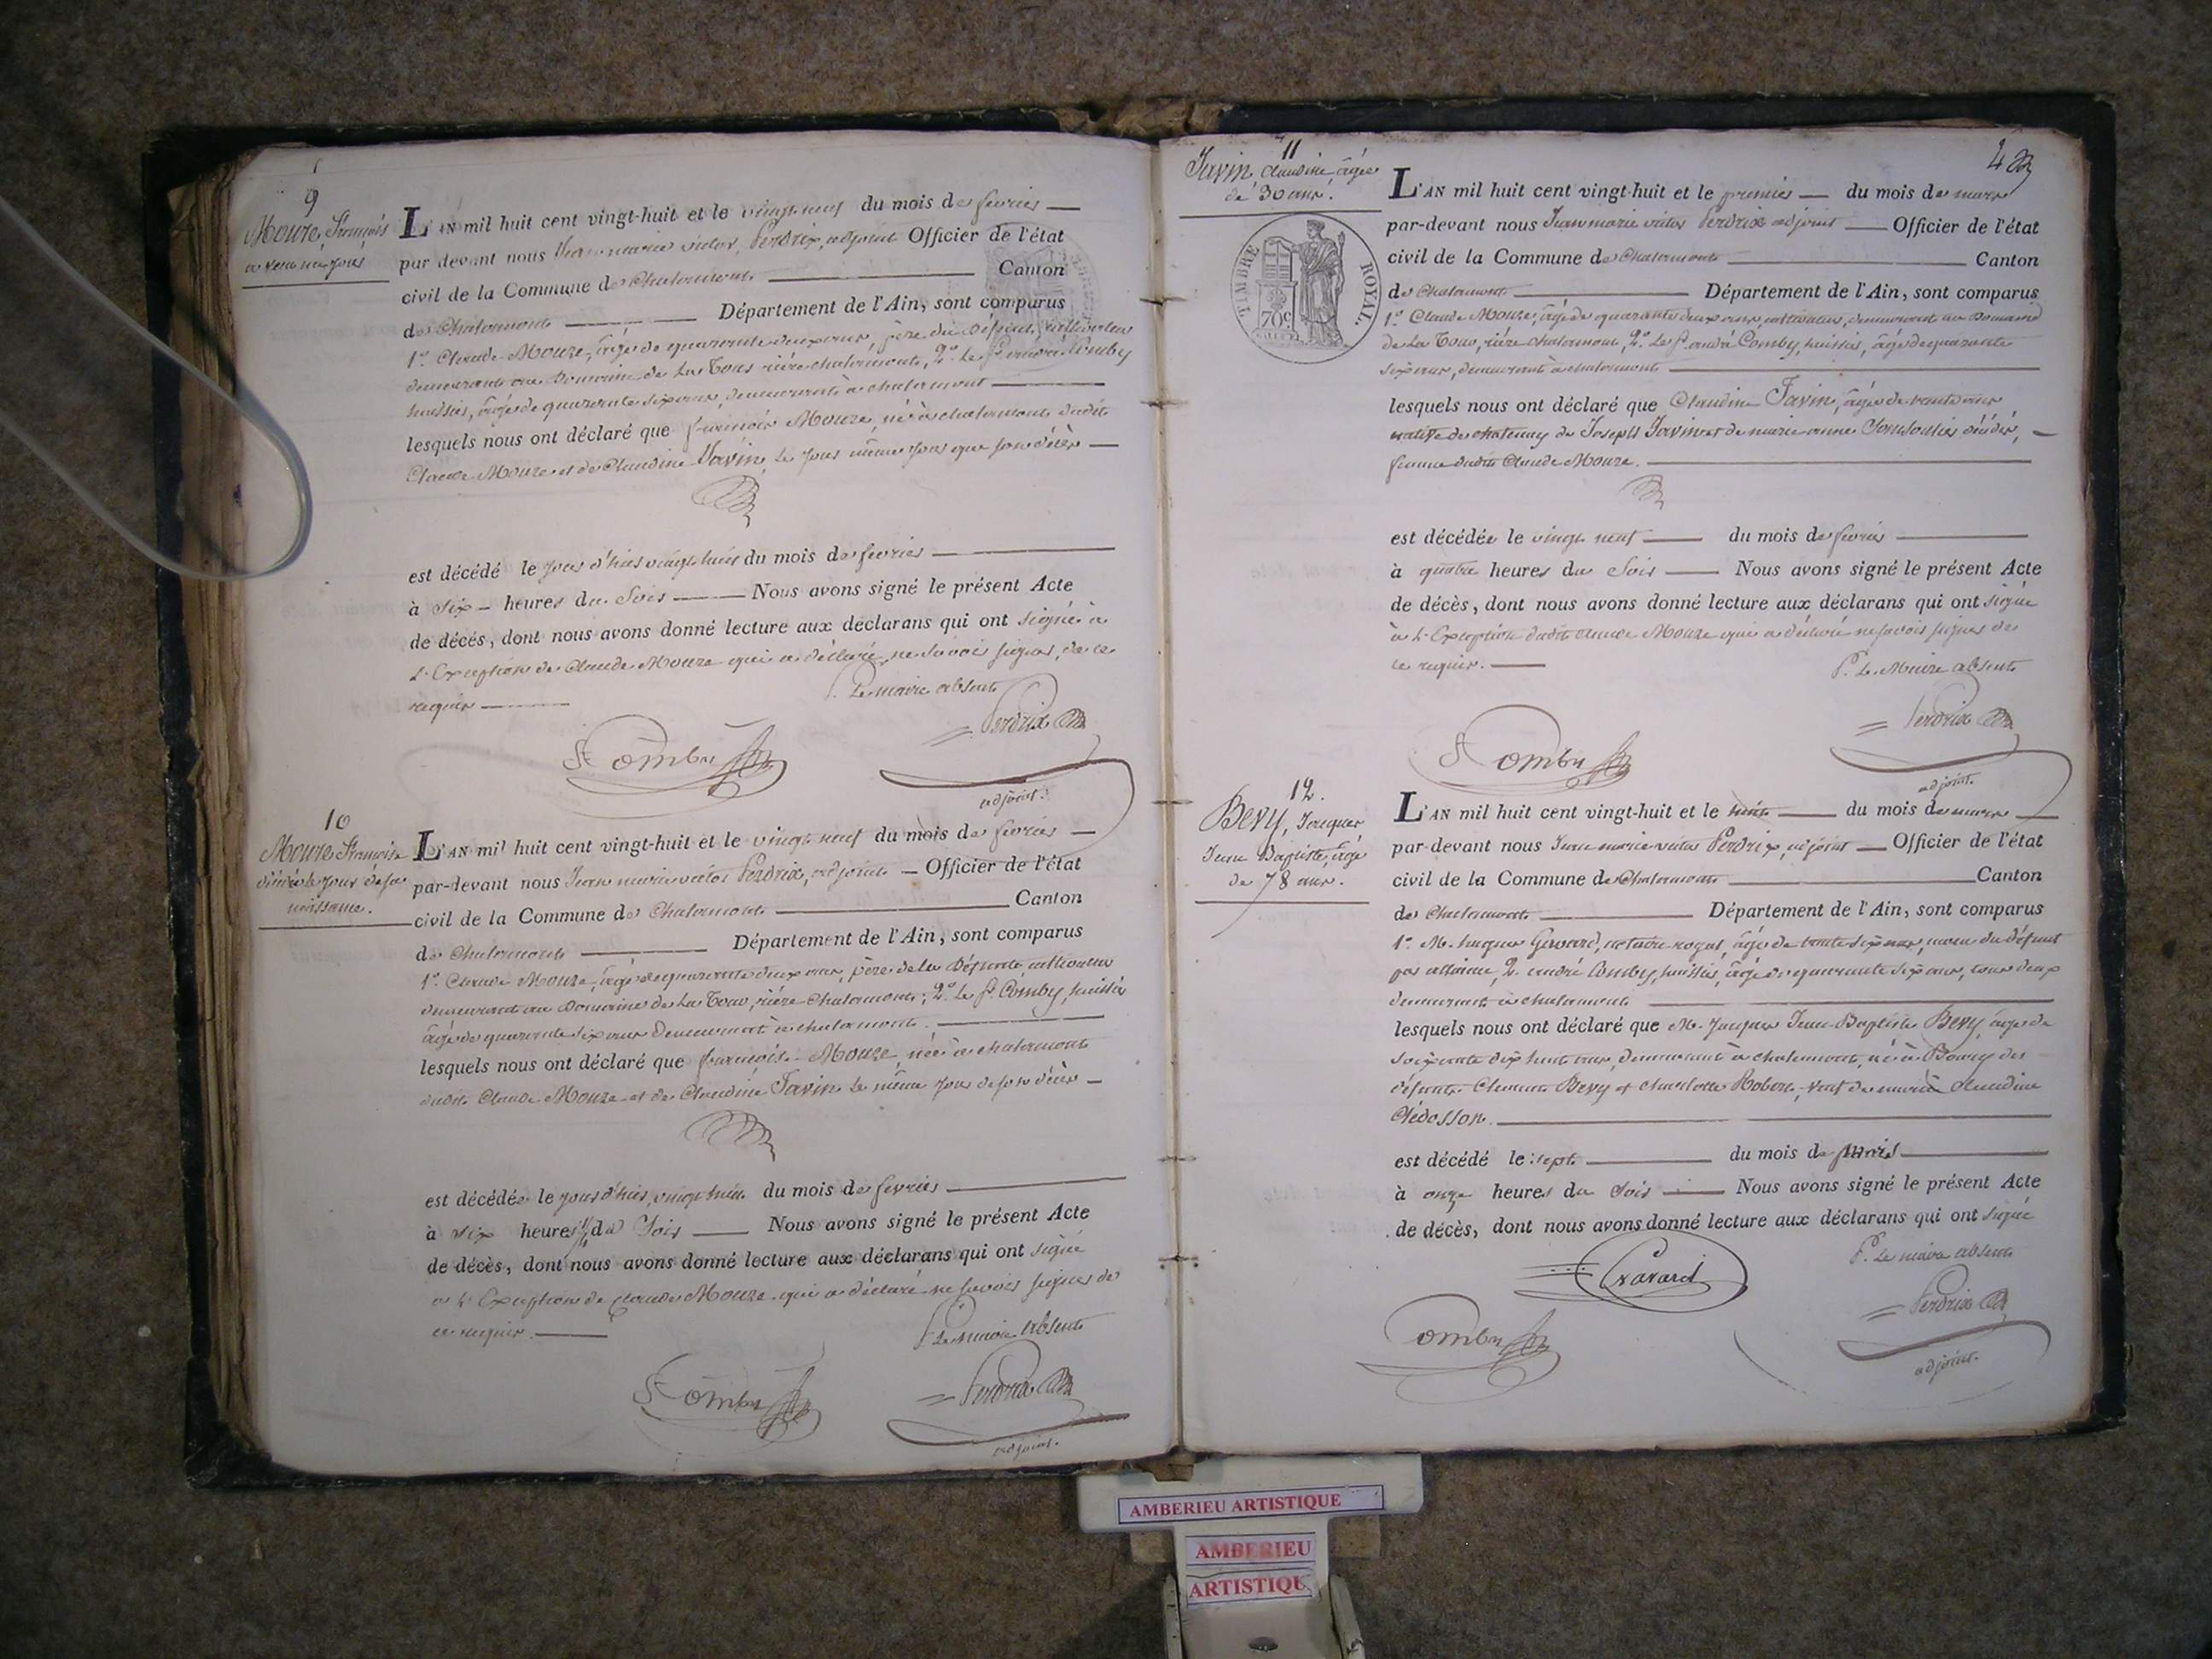 9
Mouze, François
L'AN mil huit cent vingt-huit et le vingt neuf du mois de fevrier
par devant nous Jean marie victor Perdrix, adjoint Officier de l'état
civil de la Commune de Chalamont Canton
de Chalamont Département de l'Ain, sont comparus
1º. Claude Mouze, âgé de quarante deux ans, père du défunt, cultivateur
demeurant au Domaine de La Tour rière chalamont, 2º. Le Sr. andré Comby
huissier, âgé de quarante six ans, demeurant à chalamont
lesquels nous ont déclaré que françois Mouze, né à chalamont dudit
Claude Mouze et de Claudine Javin, le jour même que son décès
est décédé le jour d'hier vingt huit du mois de fevrier
à six heures du Soir Nous avons signé le présent Acte
de décès, dont nous avons donné lecture aux déclarans qui ont signé à
L'Exception de Claude Mouze qui a déclaré ne savoir signer, de ce
requis
P. Le maire absent
Comby
Perdrix
adjoint.
10
Mouze Françoise
décédée le jour de sa
naissance.
L'AN mil huit cent vingt-huit et le vingt neuf du mois de fevrier
par-devant nous Jean marie victor Perdrix, adjoint Officier de l'état
civil de la Commune de Chalamont Canton
de Chalamont Département de l'Ain, sont comparus
1º. Claude Mouze, âgé de quarante deux ans, père de la défunte, cultivateur
demeurant au Domaine de La Tour, rière Chalamont; 2º. Le Sr. Comby, huissier
âgé de quarante six ans demeurant à chalamont.
lesquels nous ont déclaré que françoise Mouze, née à chalamont
dudit Claude Mouze et de Claudine Javin le même jour de son décès
est décédée le jour d'hier, vingt huit du mois de fevrier
à six heures 1/2 du Soir Nous avons signé le présent Acte
de décès, dont nous avons donné lecture aux déclarans qui ont signé
à L'Exception de Claude Mouze qui a déclaré ne savoir signer de
ce requis.
P. Le maire absent
Comby
Perdrix
adjoint.
11
Javin Claudine, âgée
de 30 ans.
TIMBRE ROYAL.
70c
L'AN mil huit cent vingt-huit et le premier du mois de mars
par-devant nous Jean marie victor Perdrix adjoint Officier de l'état
civil de la Commune de Chalamont Canton
de Chalamont Département de l'Ain, sont comparus
1º. Claude Mouze, âgé de quarante deux ans, cultivateur, demeurant au Domaine
de La Tour, rière chalamont, 2º. Le Sr. andré Comby, huissier, âgé de quarante
six ans, demeurant à chalamont
lesquels nous ont déclaré que Claudine Javin, âgée de trente ans
native de chatenay de Joseph Javin et de marie anne décédés,
femme dudit Claude Mouze.
est décédée le vingt neuf du mois de fevrier
à quatre heures du Soir Nous avons signé le présent Acte
de décès, dont nous avons donné lecture aux déclarans qui ont signé
à L'Exception dudit Claude Mouze qui a déclaré ne savoir signer de
ce requis.
P. Le Maire absent
Comby
Perdrix
adjoint.
12.
Bevy, Jacques
Jean Baptiste, âgé
de 78 ans.
L'AN mil huit cent vingt-huit et le huit du mois de mars
par-devant nous Jean marie victor Perdrix, adjoint Officier de l'état
civil de la Commune de Chalamont Canton
de Chalamont Département de l'Ain, sont comparus
1º. M. Jacques Gravard, notaire royal, âgé de trente six ans, neveu du défunt
par alliance, 2. andré Comby, huissier, âgé de quarante six ans, tous deux
demeurant à chalamont
lesquels nous ont déclaré que M. Jacques Jean-Baptiste Bevy, âgé de
soixante dix huit ans, demeurant à chalamont, né à Bourg des
défunts Clement Bevy et charlotte Robert, veuf de marie claudine
est décédé le sept du mois de Mars
à onze heures du Soir Nous avons signé le présent Acte
de décès, dont nous avons donné lecture aux déclarans qui ont signé
P. Le maire absent
Gravard
Comby
Perdrix
adjoint.
AMBERIEU ARTISTIQUE
AMBERIEU
ARTISTIQU